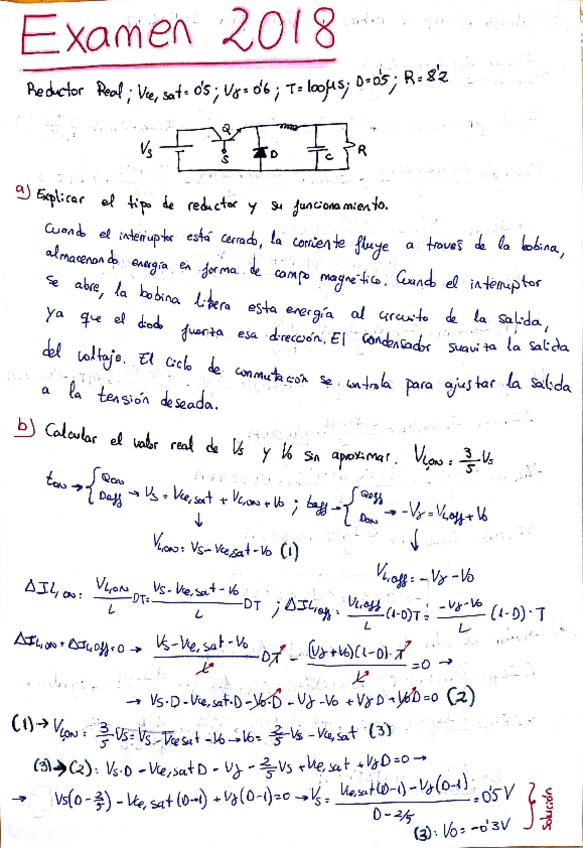 Examen 2018
Reductor Real; Vce,sat = 0'5; Vγ = 0'6; T = 100μs; D = 0'5; R = 8'2
Q
Vs S D C R
a) Explicar el tipo de reductor y su funcionamiento.
Cuando el interruptor está cerrado, la corriente fluye a traves de la bobina,
almacenando energía en forma de campo magnético. Cuando el interruptor
se abre, la bobina libera esta energía al circuito de la salida,
ya que el diodo fuerza esa dirección. El condensador suaviza la salida
del voltaje. El ciclo de conmutación se controla para ajustar la salida
a la tensión deseada.
b) Calcular el valor real de Vs y Vo sin aproximar. VL,ON = 3/5 Vs
ton → { Qon Doff → Vs = Vce,sat + VL,ON + Vo ; toff → { Qoff Don → -Vγ = VL,off + Vo
↓ ↓
VL,ON = Vs - Vce,sat - Vo (1)
VL,off = -Vγ - Vo
ΔIL,ON = VL,ON/L DT = Vs - Vce,sat - Vo/L DT ; ΔIL,off = VL,off/L (1-D)T = -Vγ-Vo/L (1-D)·T
ΔIL,ON + ΔIL,off = 0 → Vs - Vce,sat - Vo/L DT - (Vγ + Vo)(1-D)·T/L = 0 →
→ Vs·D - Vce,sat·D - Vo·D - Vγ - Vo + VγD + VoD = 0 (2)
(1) → VL,ON = 3/5 Vs = Vs - Vce,sat - Vo → Vo = 2/5 Vs - Vce,sat (3)
(3) → (2): Vs·D - Vce,sat D - Vγ - 2/5 Vs + Vce,sat + VγD = 0 →
→ Vs(D - 2/5) - Vce,sat (D-1) + Vγ(D-1) = 0 → Vs = Vce,sat(D-1) - Vγ(D-1)/D - 2/5 = 0'5 V
(3): Vo = -0'3V
Solución